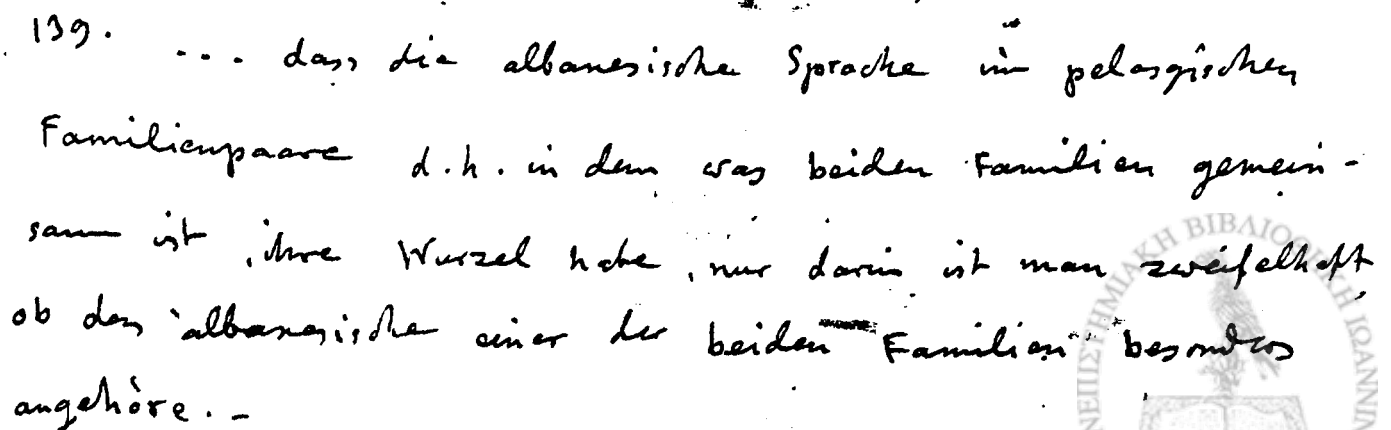 139. ... dass die albanesische Sprache im pelasgischen
Familienpaare d.h. in dem was beiden Familien gemein-
sam ist, ihre Wurzel habe, nur darin ist man zweifelhaft,
ob das albanesische einer der beiden Familien besonders
angehöre. -
ΒΙΒΛΙΟ ΙΩΑΝΝΙΝ